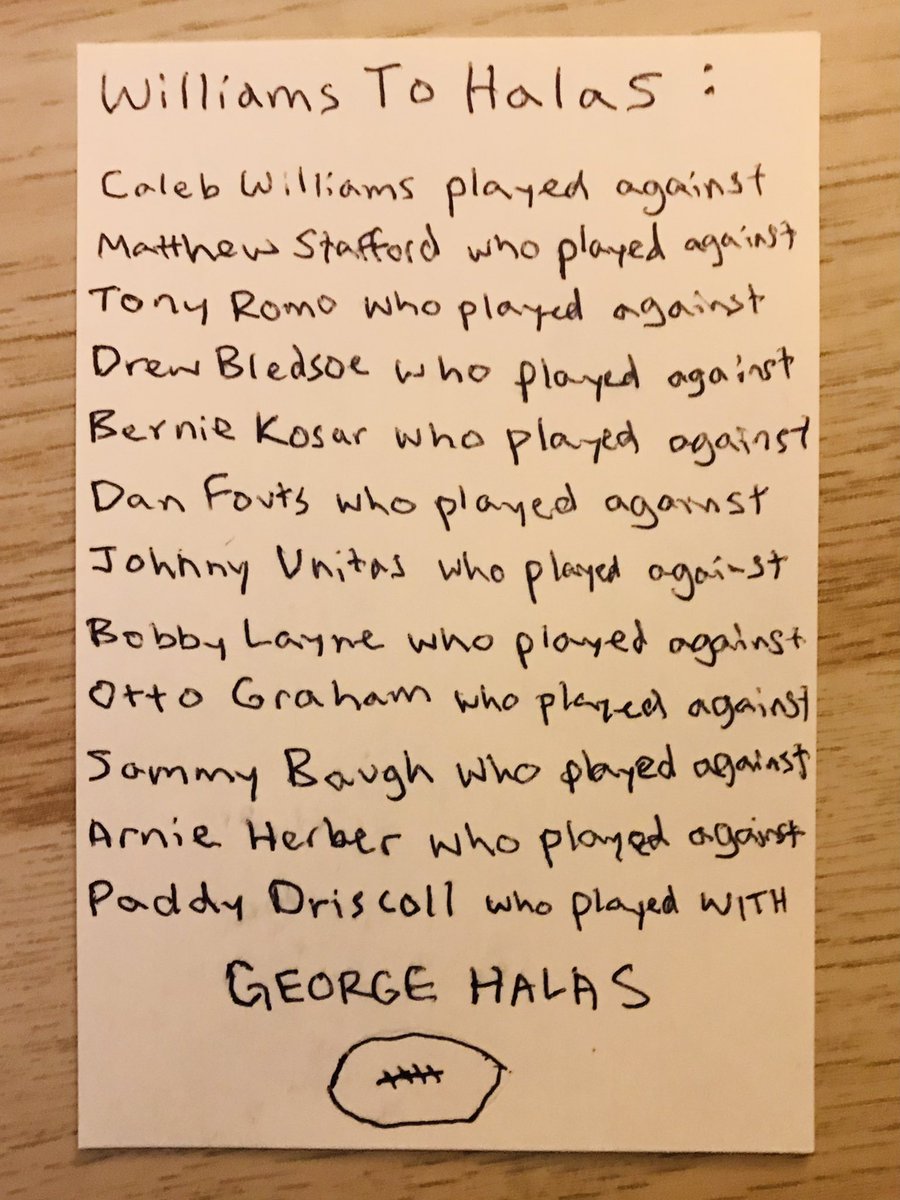 Williams To Halas :
Caleb Williams played against
Matthew Stafford who played against
Tony Romo who played against
Drew Bledsoe who played against
Bernie Kosar who played against
Dan Fouts who played against
Johnny Unitas who played against
Bobby Layne who played against
Otto Graham who played against
Sammy Baugh who played against
Arnie Herber who played against
Paddy Driscoll who played WITH
GEORGE HALAS